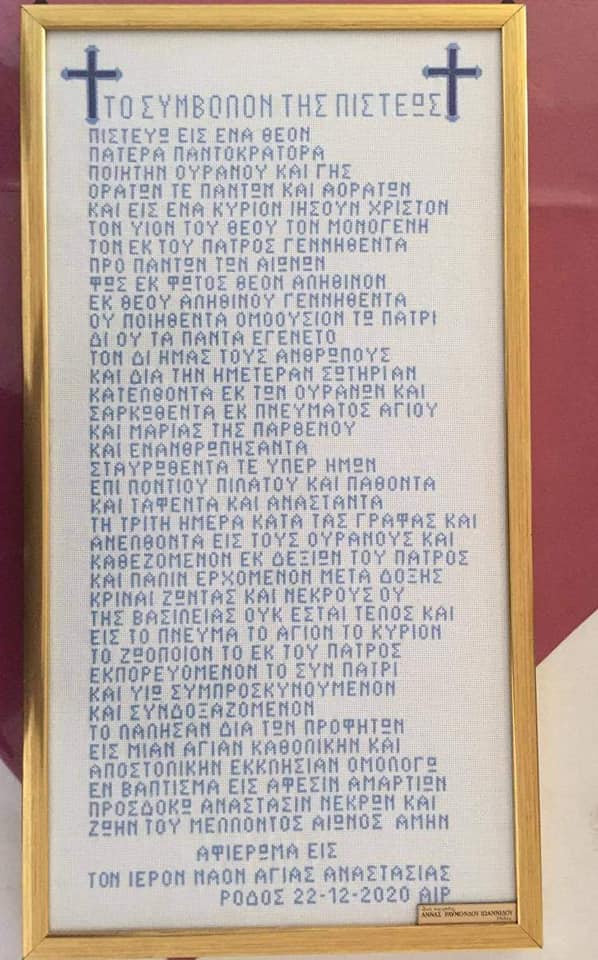 ΤΟ ΣΥΜΒΟΛΟΝ ΤΗΣ ΠΙΣΤΕΩΣ
ΠΙΣΤΕΥΩ ΕΙΣ ΕΝΑ ΘΕΟΝ
ΠΑΤΕΡΑ ΠΑΝΤΟΚΡΑΤΟΡΑ
ΠΟΙΗΤΗΝ ΟΥΡΑΝΟΥ ΚΑΙ ΓΗΣ
ΟΡΑΤΩΝ ΤΕ ΠΑΝΤΩΝ ΚΑΙ ΑΟΡΑΤΩΝ
ΚΑΙ ΕΙΣ ΕΝΑ ΚΥΡΙΟΝ ΙΗΣΟΥΝ ΧΡΙΣΤΟΝ
ΤΟΝ ΥΙΟΝ ΤΟΥ ΘΕΟΥ ΤΟΝ ΜΟΝΟΓΕΝΗ
ΤΟΝ ΕΚ ΤΟΥ ΠΑΤΡΟΣ ΓΕΝΝΗΘΕΝΤΑ
ΠΡΟ ΠΑΝΤΩΝ ΤΩΝ ΑΙΩΝΩΝ
ΦΩΣ ΕΚ ΦΩΤΟΣ ΘΕΟΝ ΑΛΗΘΙΝΟΝ
ΕΚ ΘΕΟΥ ΑΛΗΘΙΝΟΥ ΓΕΝΝΗΘΕΝΤΑ
ΟΥ ΠΟΙΗΘΕΝΤΑ ΟΜΟΟΥΣΙΟΝ ΤΩ ΠΑΤΡΙ
ΔΙ ΟΥ ΤΑ ΠΑΝΤΑ ΕΓΕΝΕΤΟ
ΤΟΝ ΔΙ ΗΜΑΣ ΤΟΥΣ ΑΝΘΡΩΠΟΥΣ
ΚΑΙ ΔΙΑ ΤΗΝ ΗΜΕΤΕΡΑΝ ΣΩΤΗΡΙΑΝ
ΚΑΤΕΛΘΟΝΤΑ ΕΚ ΤΩΝ ΟΥΡΑΝΩΝ ΚΑΙ
ΣΑΡΚΩΘΕΝΤΑ ΕΚ ΠΝΕΥΜΑΤΟΣ ΑΓΙΟΥ
ΚΑΙ ΜΑΡΙΑΣ ΤΗΣ ΠΑΡΘΕΝΟΥ
ΚΑΙ ΕΝΑΝΘΡΩΠΗΣΑΝΤΑ
ΣΤΑΥΡΩΘΕΝΤΑ ΤΕ ΥΠΕΡ ΗΜΩΝ
ΕΠΙ ΠΟΝΤΙΟΥ ΠΙΛΑΤΟΥ ΚΑΙ ΠΑΘΟΝΤΑ
ΚΑΙ ΤΑΦΕΝΤΑ ΚΑΙ ΑΝΑΣΤΑΝΤΑ
ΤΗ ΤΡΙΤΗ ΗΜΕΡΑ ΚΑΤΑ ΤΑΣ ΓΡΑΦΑΣ ΚΑΙ
ΑΝΕΛΘΟΝΤΑ ΕΙΣ ΤΟΥΣ ΟΥΡΑΝΟΥΣ ΚΑΙ
ΚΑΘΕΖΟΜΕΝΟΝ ΕΚ ΔΕΞΙΩΝ ΤΟΥ ΠΑΤΡΟΣ
ΚΑΙ ΠΑΛΙΝ ΕΡΧΟΜΕΝΟΝ ΜΕΤΑ ΔΟΞΗΣ
ΚΡΙΝΑΙ ΖΩΝΤΑΣ ΚΑΙ ΝΕΚΡΟΥΣ ΟΥ
ΤΗΣ ΒΑΣΙΛΕΙΑΣ ΟΥΚ ΕΣΤΑΙ ΤΕΛΟΣ ΚΑΙ
ΕΙΣ ΤΟ ΠΝΕΥΜΑ ΤΟ ΑΓΙΟΝ ΤΟ ΚΥΡΙΟΝ
ΤΟ ΖΩΟΠΟΙΟΝ ΤΟ ΕΚ ΤΟΥ ΠΑΤΡΟΣ
ΕΚΠΟΡΕΥΟΜΕΝΟΝ ΤΟ ΣΥΝ ΠΑΤΡΙ
ΚΑΙ ΥΙΩ ΣΥΜΠΡΟΣΚΥΝΟΥΜΕΝΟΝ
ΚΑΙ ΣΥΝΔΟΞΑΖΟΜΕΝΟΝ
ΤΟ ΛΑΛΗΣΑΝ ΔΙΑ ΤΩΝ ΠΡΟΦΗΤΩΝ
ΕΙΣ ΜΙΑΝ ΑΓΙΑΝ ΚΑΘΟΛΙΚΗΝ ΚΑΙ
ΑΠΟΣΤΟΛΙΚΗΝ ΕΚΚΛΗΣΙΑΝ ΟΜΟΛΟΓΩ
ΕΝ ΒΑΠΤΙΣΜΑ ΕΙΣ ΑΦΕΣΙΝ ΑΜΑΡΤΙΩΝ
ΠΡΟΣΔΟΚΩ ΑΝΑΣΤΑΣΙΝ ΝΕΚΡΩΝ ΚΑΙ
ΖΩΗΝ ΤΟΥ ΜΕΛΛΟΝΤΟΣ ΑΙΩΝΟΣ ΑΜΗΝ
ΑΦΙΕΡΩΜΑ ΕΙΣ
ΤΟΝ ΙΕΡΟΝ ΝΑΟΝ ΑΓΙΑΣ ΑΝΑΣΤΑΣΙΑΣ
ΡΟΔΟΣ 22-12-2020 ΑΙΡ
ΑΝΝΑΣ ΡΑΥΜΟΝΔΟΥ ΙΩΑΝΝΙΔΟΥ